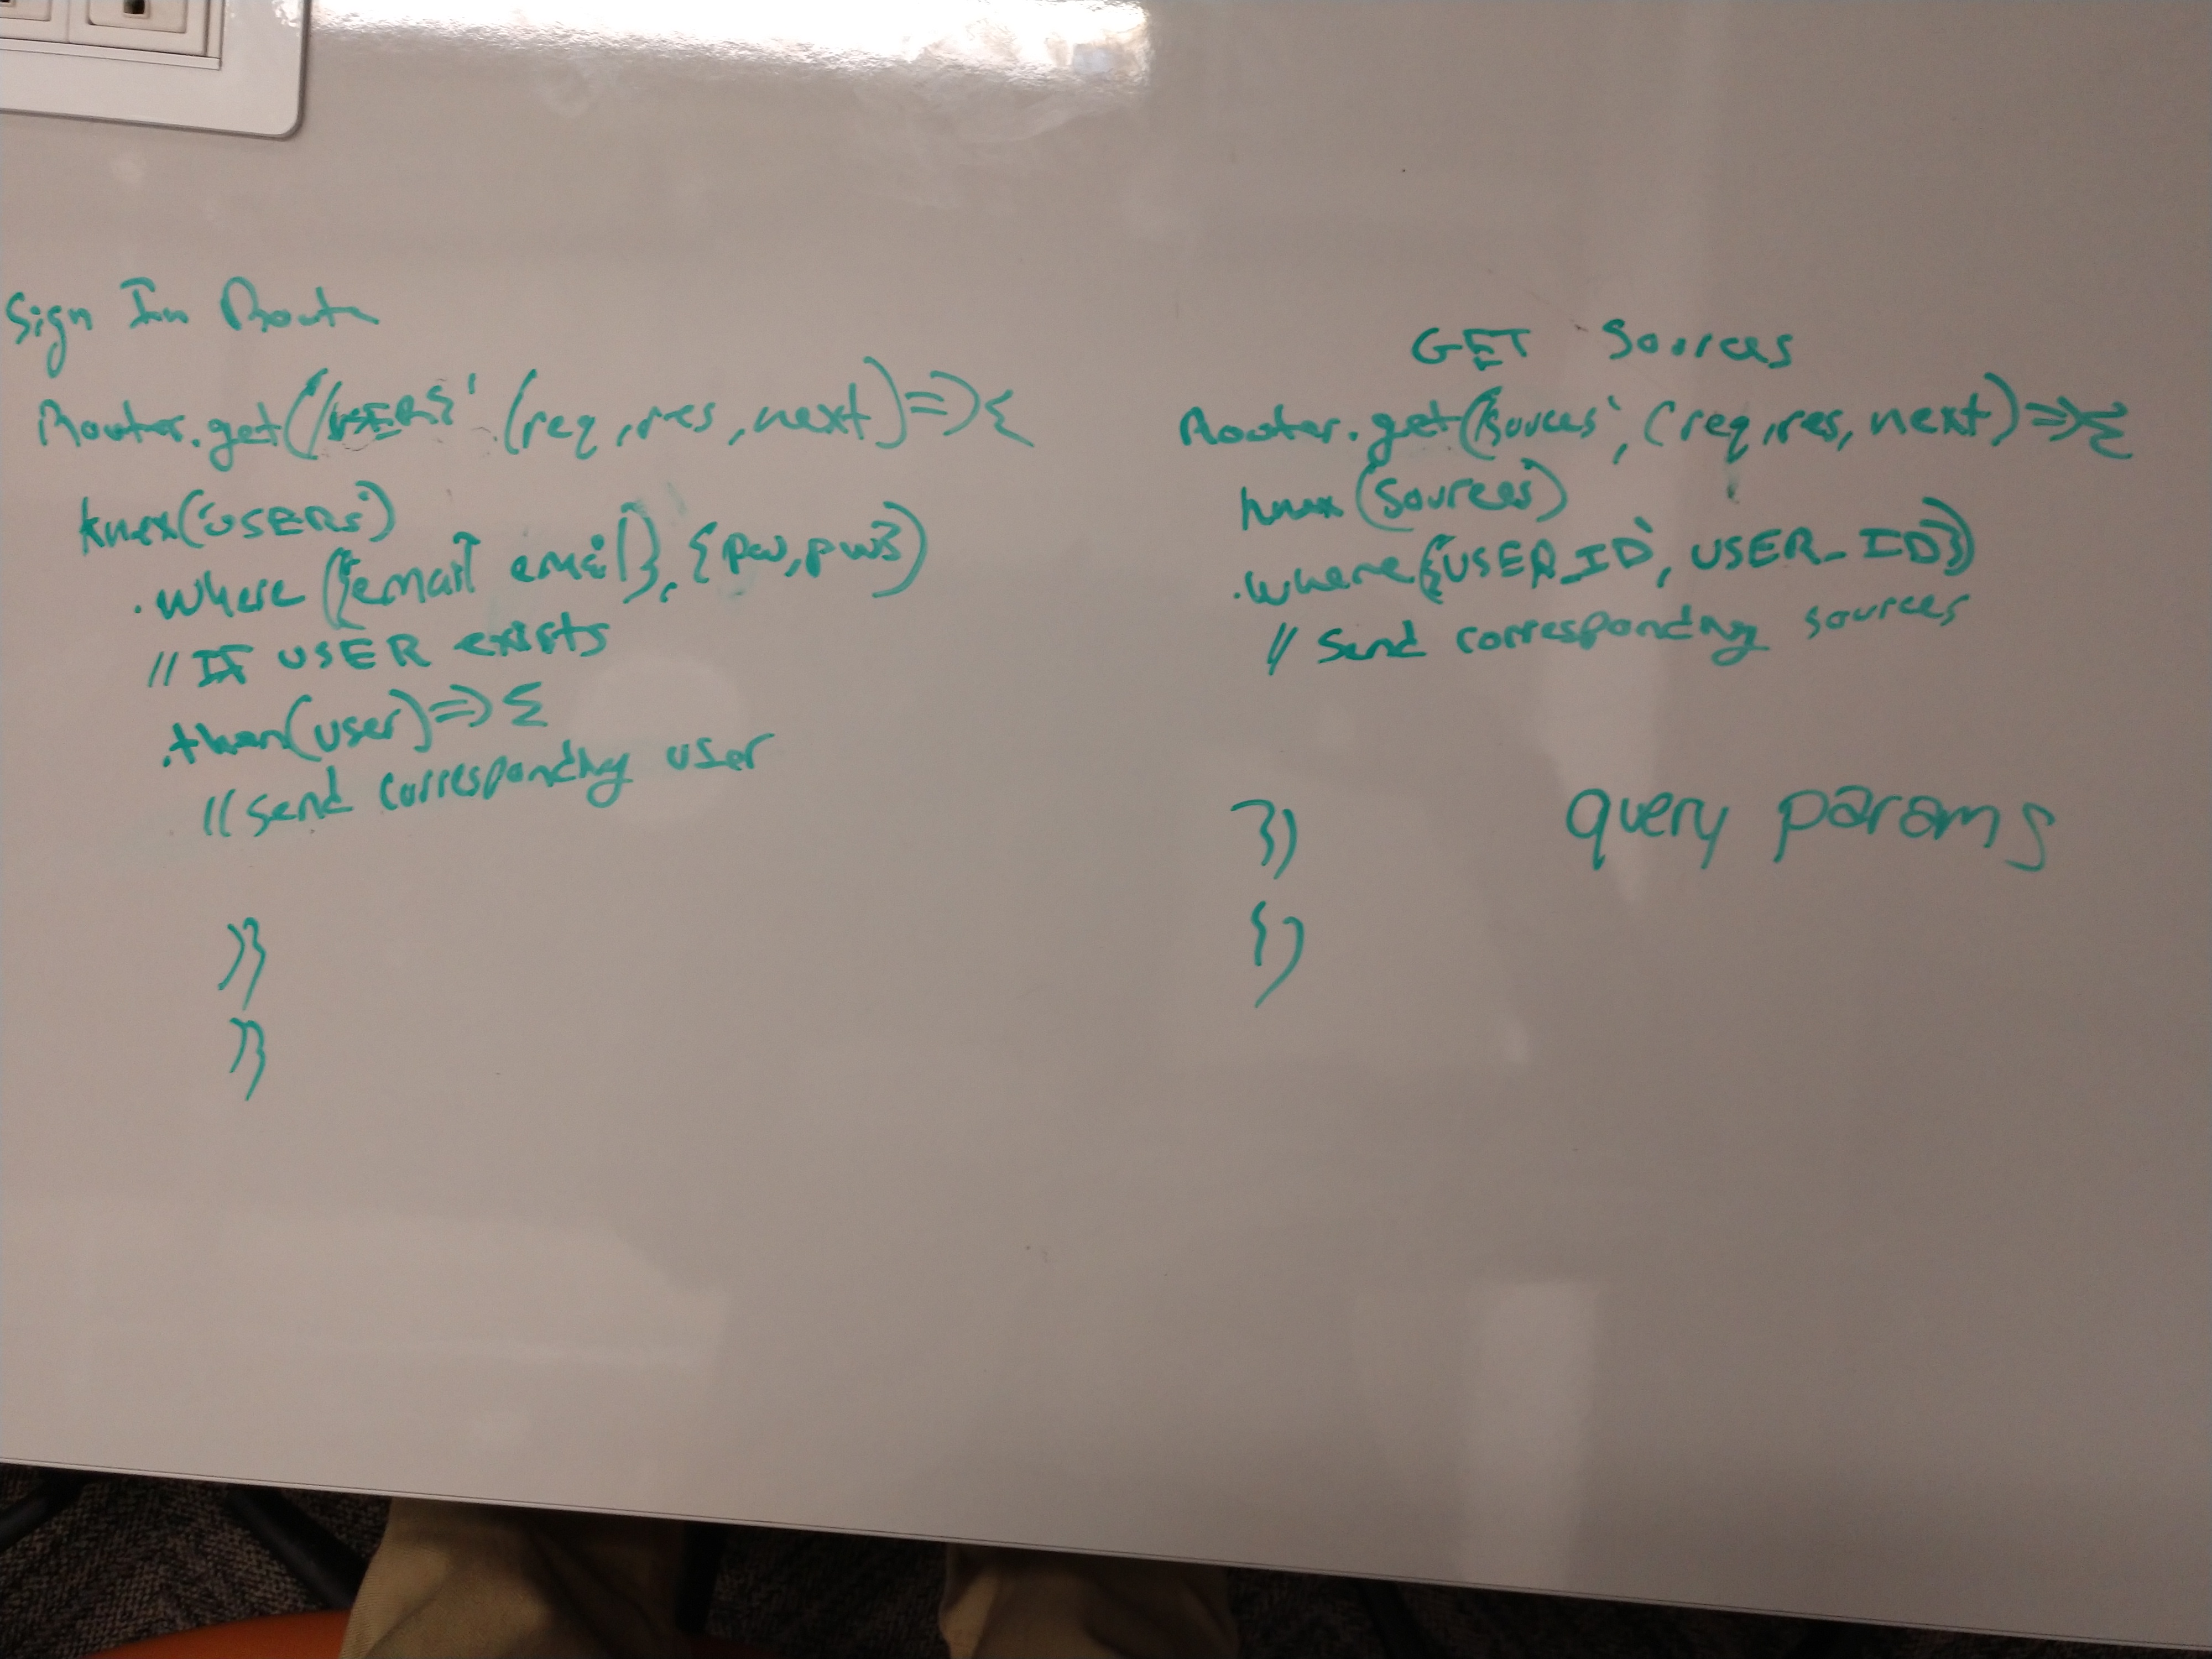 Sign In Route
Router.get('/USERS' (req, res, next) => {
knex('USERS')
.where({email email}, {pw, pw})
// If USER exists
.then(user) => {
// Send corresponding user
)}
)}
GET Sources
Router.get('/sources', (req, res, next) => {
knex(Sources)
.where({USER_ID, USER_ID})
// Send corresponding sources
})
})
query params